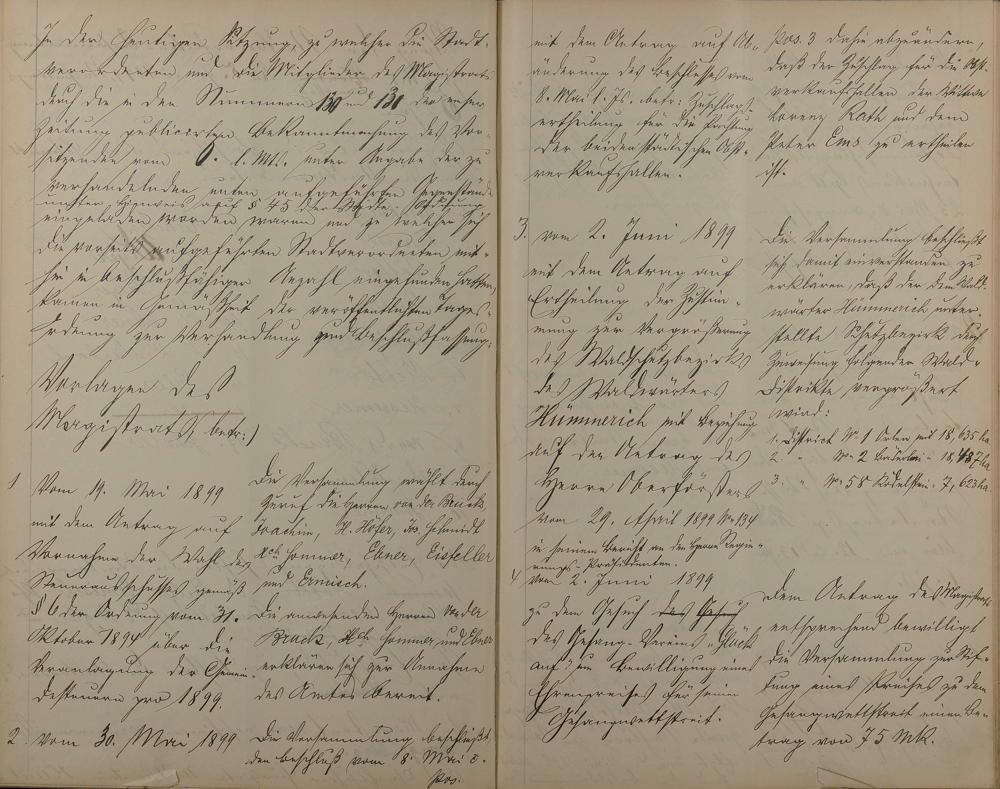 In der heutigen Sitzung, zu welcher die Stadt-
verordneten und die Mitglieder des Magistrats
durch die in den Nummern 130 und 131 der
Zeitung publicirten Bekanntmachung des Vor-
sitzenden vom 6. l. Mts. unter Angabe der zu
verhandelnden unten aufgeführten Gegenstände
unter Hinweis auf § 45 der Städte-Ordnung
eingeladen worden waren und zu welcher sich
die vorseits aufgeführten Stadtverordneten mit-
hin in beschlußfähiger Anzahl eingefunden hatten,
kamen in Gemäßheit der veröffentlichten Tages-
ordnung zur Verhandlung und Beschlußfassung:
Vorlagen des
Magistrats, betr:)
1 Vom 19. Mai 1899
mit dem Antrag auf
Vornahme der Wahl des
Steuerausschusses gemäß
§ 6 der Ordnung vom 31.
Oktober 1894 über die
Veranlagung der Gemein-
desteuern pro 1899.
Die Versammlung wählt durch
Zuruf die Herren von der Bruck,
Joachim, H. Höfer, Jos. Schmidt
Hch. Hommer, Ebner, Eisfeller
und Ermisch.
Die anwesenden Herren von der
Bruck, Hch. Hommer, und Ebner
erklären sich zur Annahme
des Amtes bereit.
2 Vom 30. Mai 1899
Die Versammlung beschließt,
den Beschluß vom 8. Mai c.
Pos.
mit dem Antrag auf Ab-
änderung des Beschlusses vom
8. Mai l. Js. betr: Zuschlags-
ertheilung für die Pachtung
der beiden städtischen Obst-
verkaufshallen.
Pos. 3 dahin abzuändern,
daß der Zuschlag für die Obst-
verkaufshallen der Wittwe
Lorenz Rath und dem
Peter Ems zu ertheilen
ist.
3. vom 2. Juni 1899
mit dem Antrag auf
Ertheilung der Zustim-
mung zur Vergrößerung
des Waldschutzbezirks
des Waldwärters
Hümmerich mit Beziehung
auf den Antrag des
Herrn Oberförsters
vom 29. April 1899 No 134
in seinem Bericht an den Herrn Regie-
rungs-Präsidenten.
Die Versammlung beschließt
sich damit einverstanden zu
erklären, daß der dem Wald-
wärter Hümmerich unter-
stellte Schutzbezirk durch
Zuweisung folgender Wald-
Distrikte vergrößert
wird:
1. District No 1 Orlen mit 18,635 ha
2. " No 2 - 18,487 ha
3. " No 58 - 7,623 ha.
4. vom 2. Juni 1899
zu dem Gesuch des Gesuchs
des Gesang-Vereins "Glück
auf" um Bewilligung eines
Ehrenpreises für seinen
Gesangwettstreit.
Dem Antrag des Magistrats
entsprechend bewilligt
die Versammlung zur Stif-
tung eines Preises zu dem
Gesangwettstreit einen Be-
trag von 75 Mk.